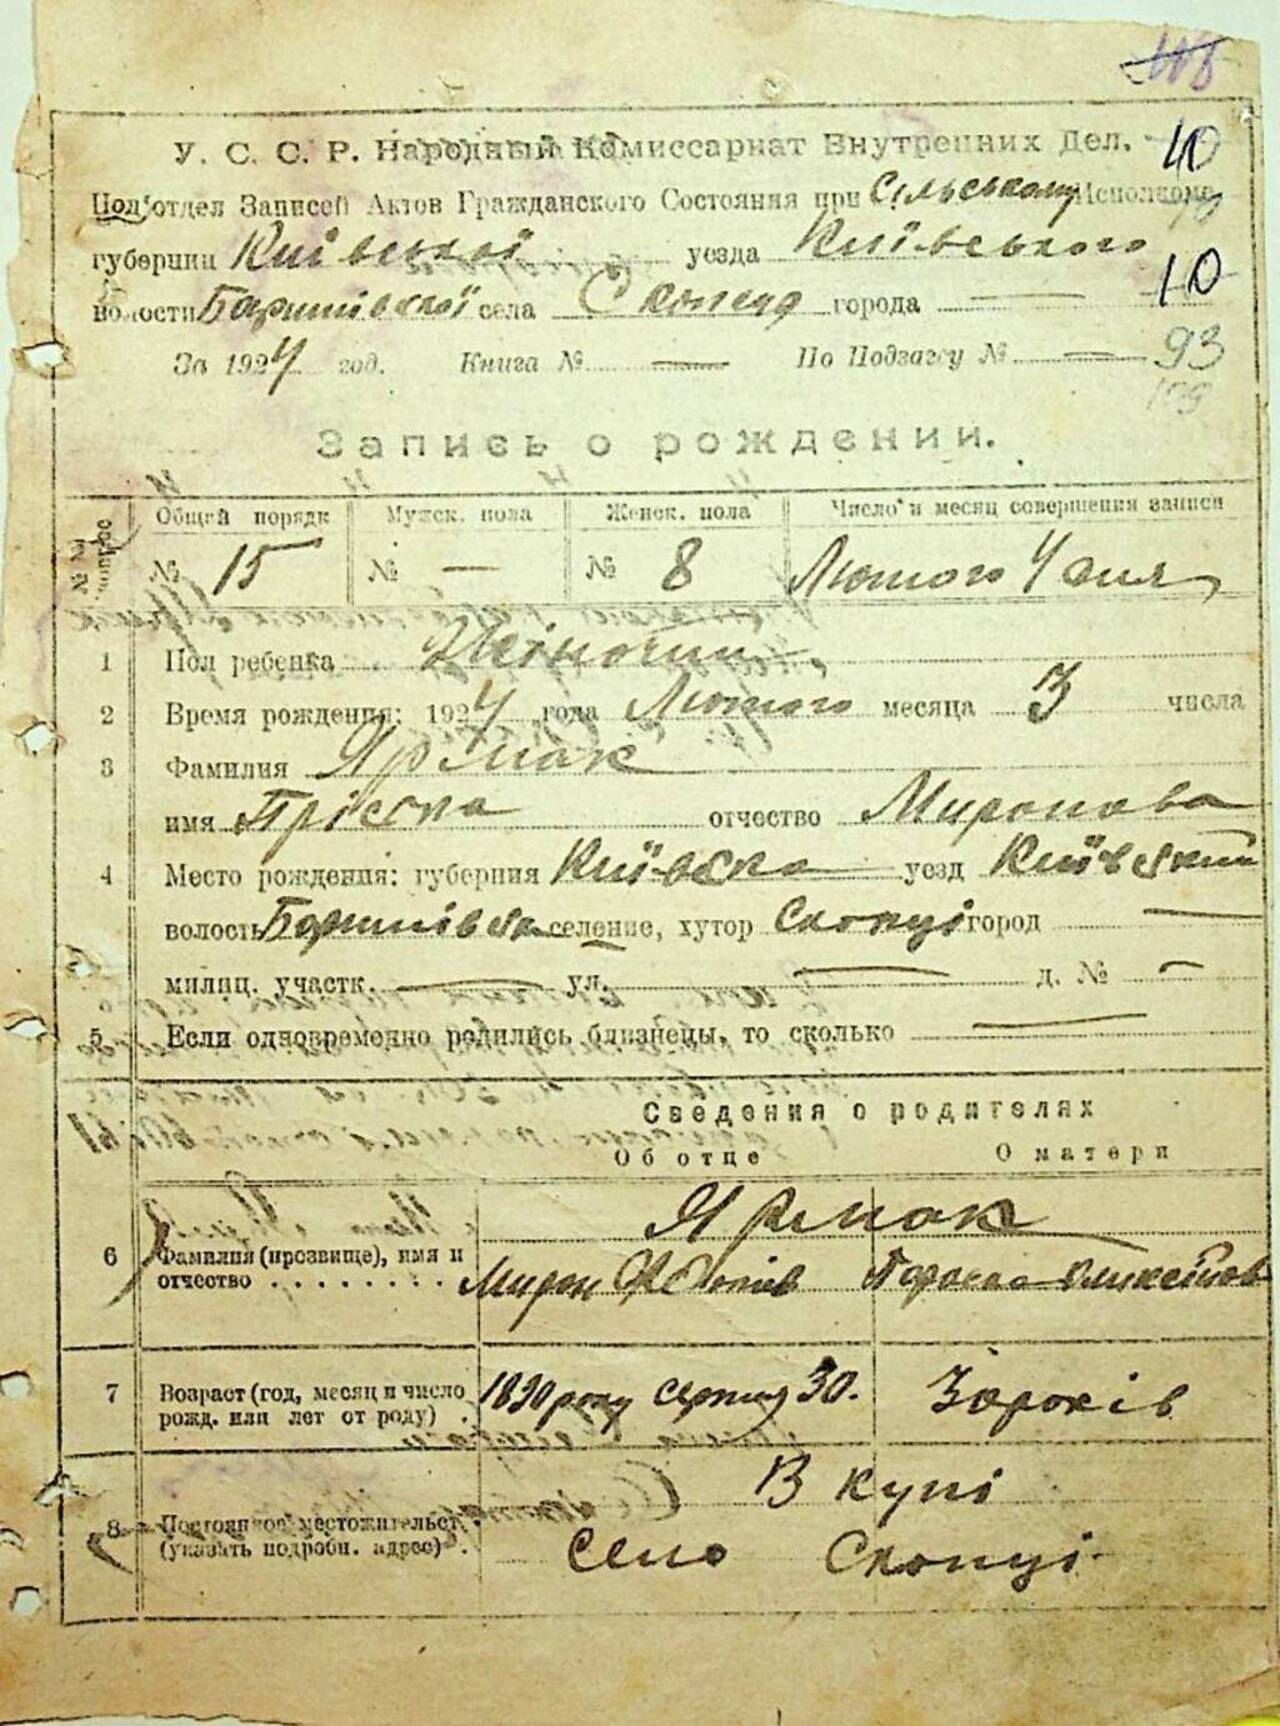 108
У. С. С. Р. Народный Комиссариат Внутренних Дел.
40
Под'отдел Записей Актов Гражданского Состояния при Сільському Исполкоме
губернии Київської уезда Київського
10
волости Баришівської села Скопец города —
За 1924 год. Книга № — По Подзагсу № —
93
109
Запись о рождении.
Общей порядк Мужск. пола Женск. пола Число и месяц совершения записи
№ 15 № — № 8 Лютого 4 дня
1 Пол ребенка Жіночий
2 Время рождения: 1924 года Лютого месяца 3 числа
3 Фамилия Ярмак
имя Пріська отчество Миронова
4 Место рождения: губерния Київська уезд Київський
волость Баришівська селение, хутор Скопці город —
милиц. участк. — ул. — д. № —
5 Если одновременно родились близнецы, то сколько —
Сведения о родителях
Об отце О матери
Ярмак
6 Фамилия (прозвище), имя и
отчество . . . . . . . . Мирон
7 Возраст (год, месяц и число
рожд. или лет от роду) . 1890 року серпня 30. 30 років
В купі
8 Постоянное местожительст.
(указать подробн. адрес) . Село Скопці